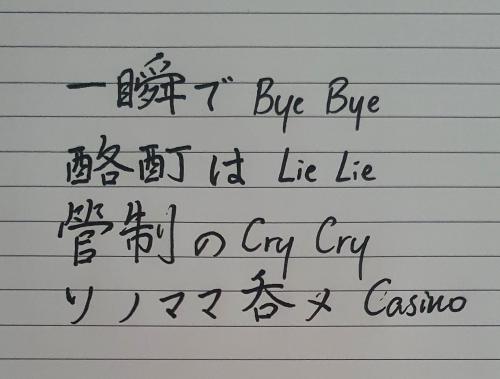 一瞬で Bye Bye
酩酊は Lie Lie
管制の Cry Cry
ソノママ呑メ Casino